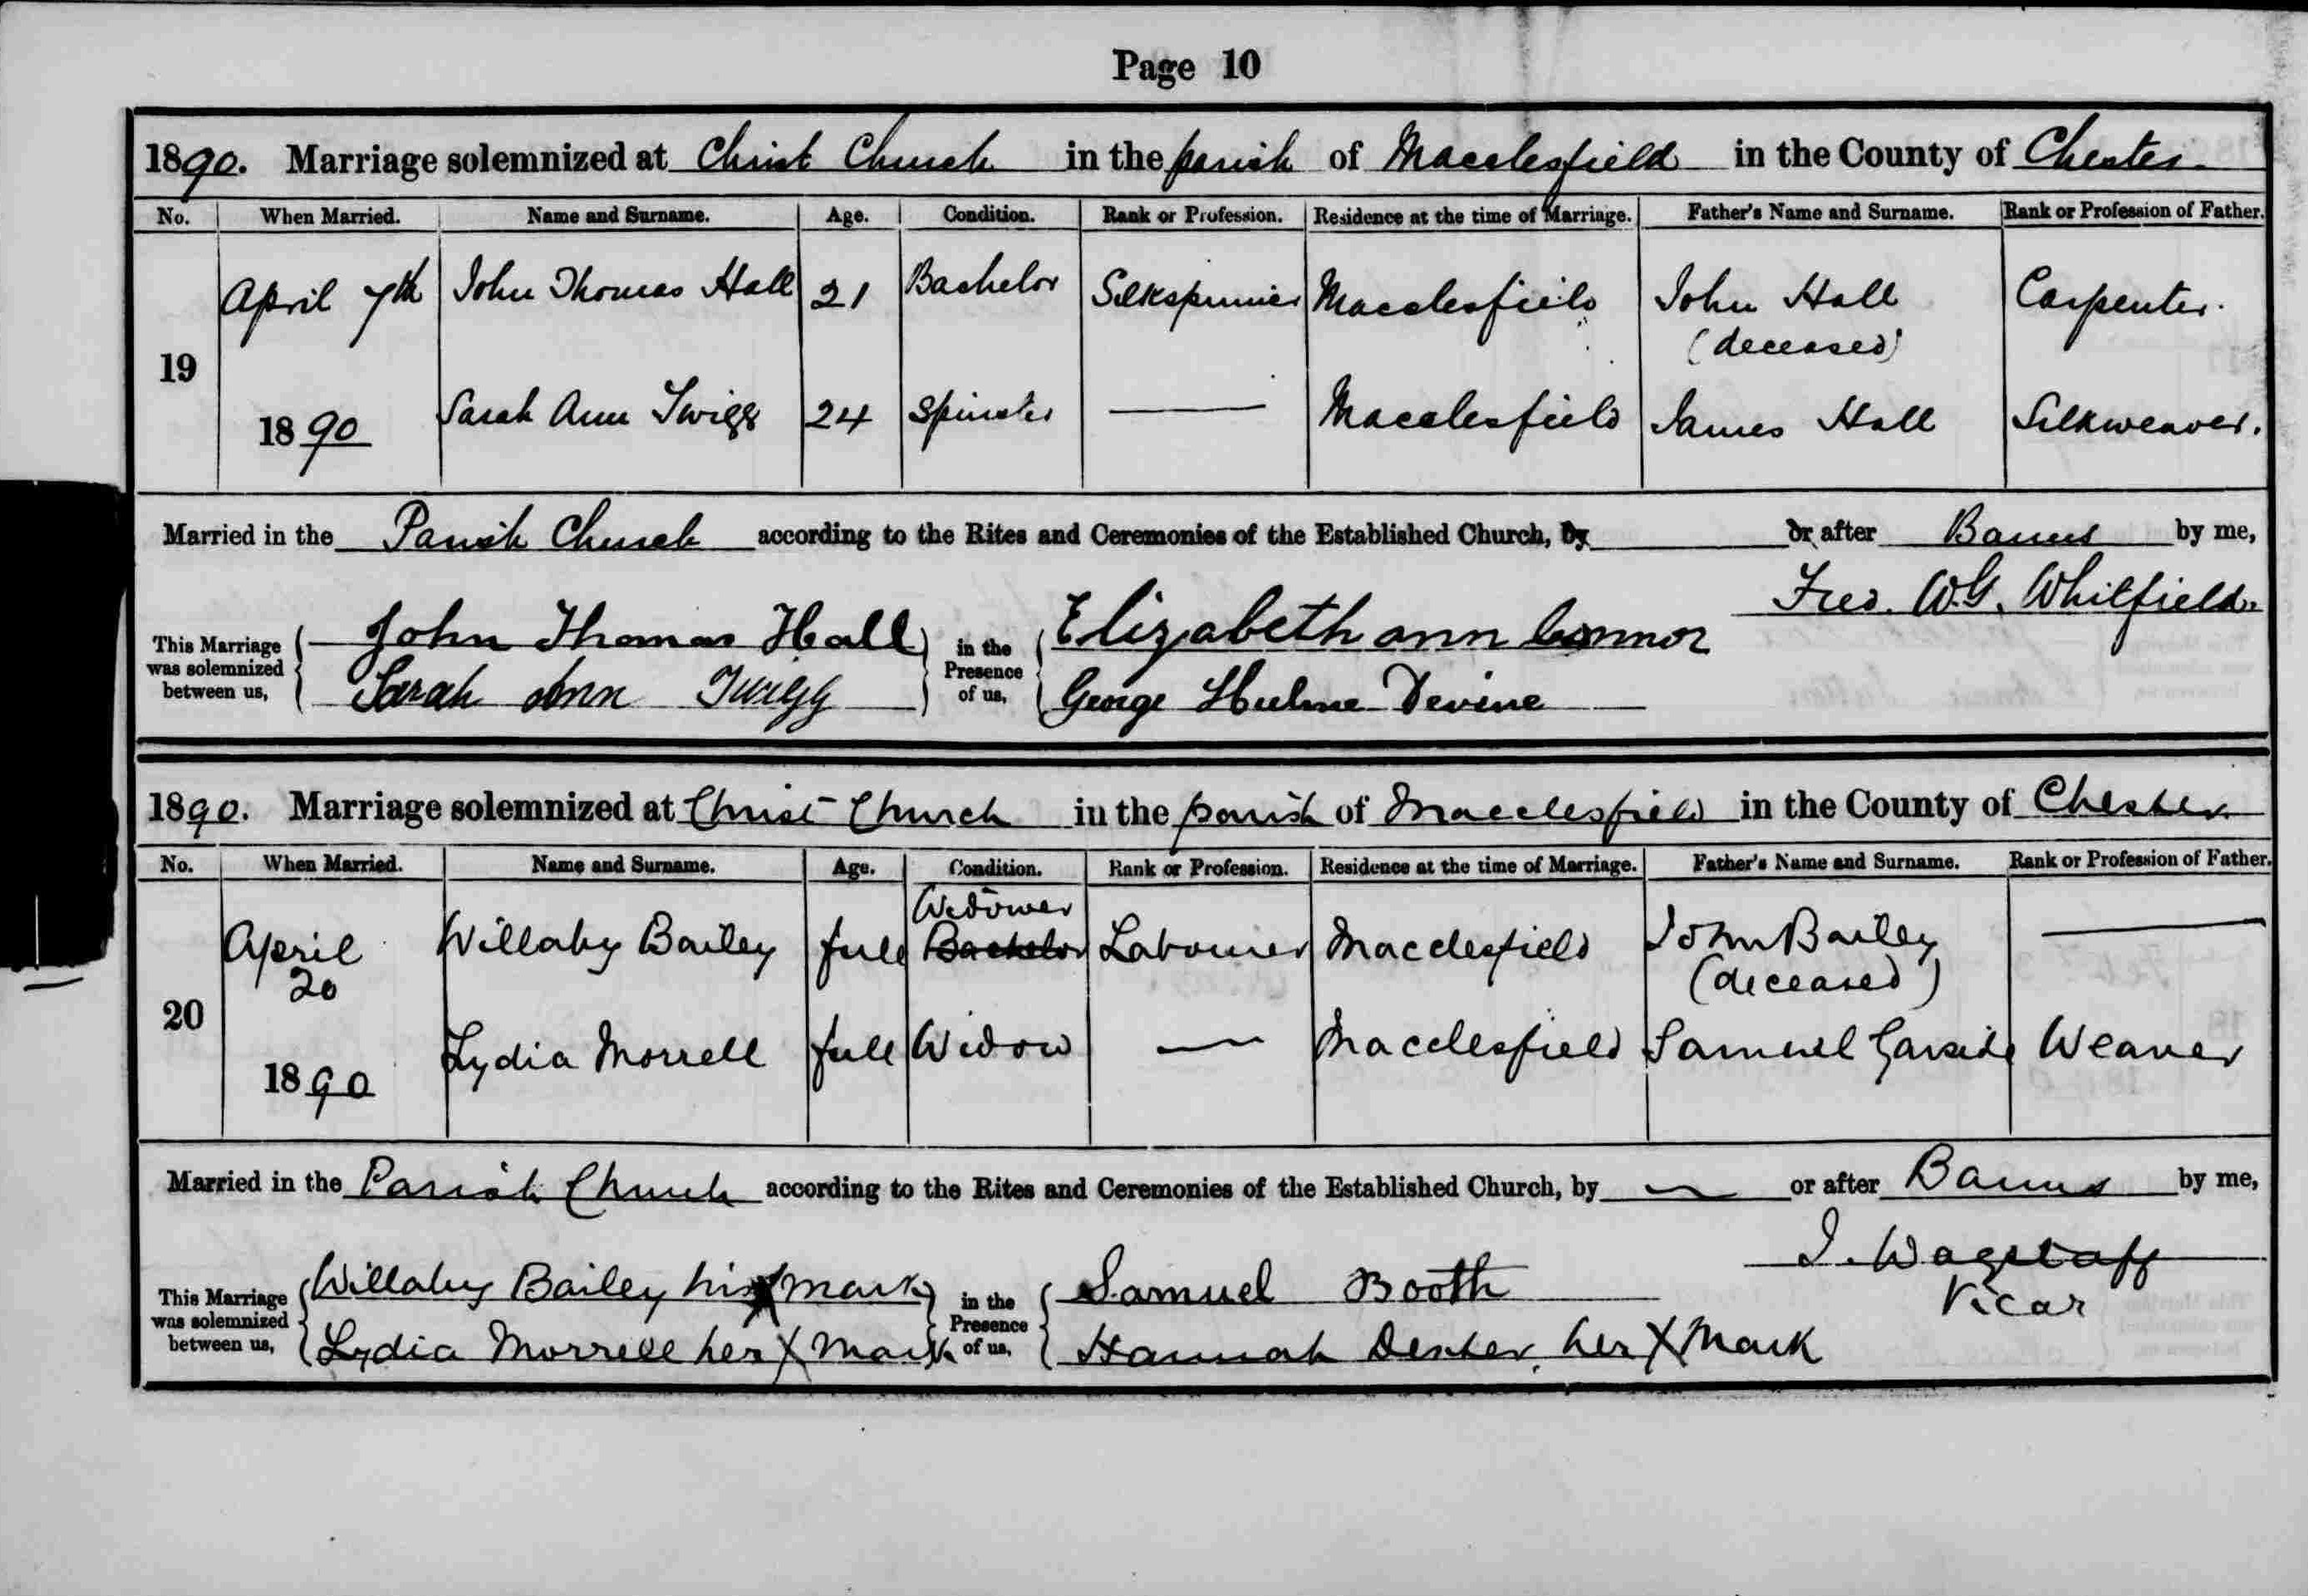 Page 10
1890. Marriage solemnized at Christ Church in the parish of Macclesfield in the County of Chester.
No. When Married. Name and Surname. Age. Condition. Rank or Profession. Residence at the time of Marriage. Father's Name and Surname. Rank or Profession of Father.
April 7th John Thomas Hall 21 Bachelor Silkspinner Macclesfield John Hall Carpenter.
(deceased)
19
1890 Sarah Ann Twigg 24 Spinster — Macclesfield James Hall Silkweaver.
Married in the Parish Church according to the Rites and Ceremonies of the Established Church, by or after Banns by me,
Fred. W.G. Whitfield.
This Marriage was solemnized between us, John Thomas Hall in the Presence of us, Elizabeth ann Connor
Sarah Ann Twigg George Hulme Devine
1890. Marriage solemnized at Christ Church in the parish of Macclesfield in the County of Chester
No. When Married. Name and Surname. Age. Condition. Rank or Profession. Residence at the time of Marriage. Father's Name and Surname. Rank or Profession of Father.
Widower
April 20 Willaby Bailey full Bachelor Labourer Macclesfield John Bailey —
(deceased)
20
1890 Lydia Morrell full Widow — Macclesfield Samuel Garside Weaver
Married in the Parish Church according to the Rites and Ceremonies of the Established Church, by — or after Banns by me,
I. Wagstaff
Vicar
This Marriage was solemnized between us, Willaby Bailey his X mark in the Presence of us, Samuel Booth
Lydia Morrell her X Mark Hannah Dexter, her X Mark